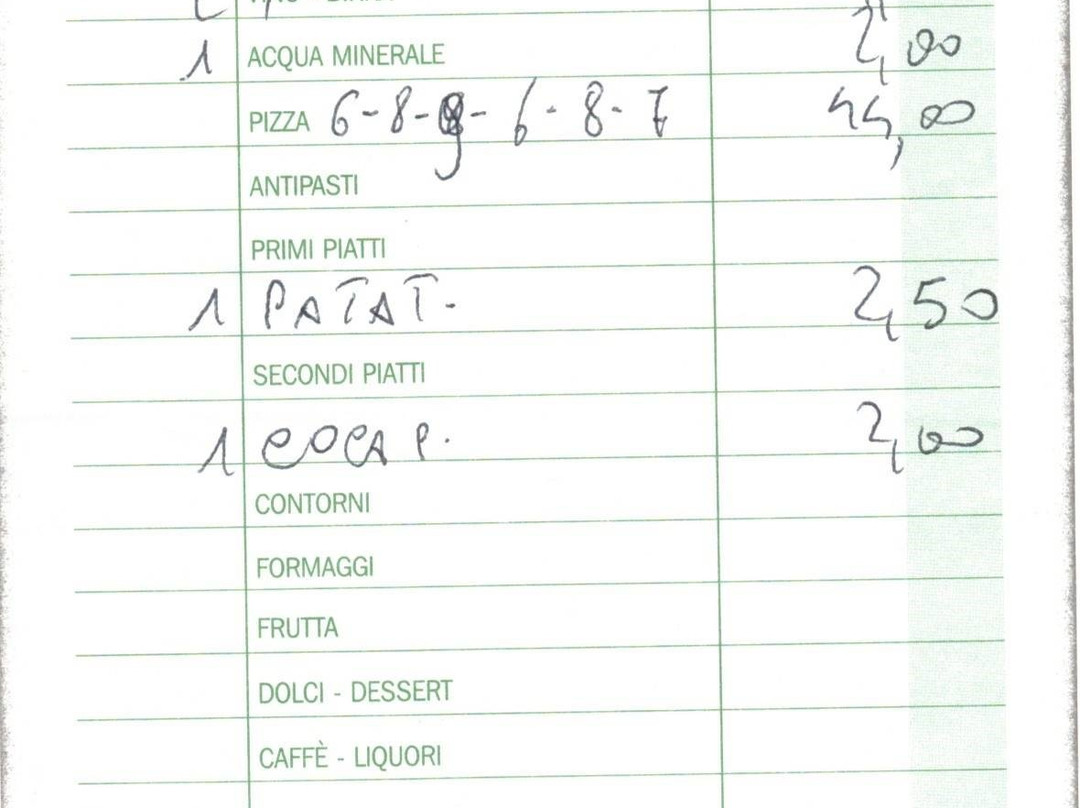 1 ACQUA MINERALE 2,00
PIZZA 6-8-9-6-8-7 44,00
ANTIPASTI
PRIMI PIATTI
1 PATAT. 2,50
SECONDI PIATTI
1 COCA P. 2,00
CONTORNI
FORMAGGI
FRUTTA
DOLCI - DESSERT
CAFFÈ - LIQUORI